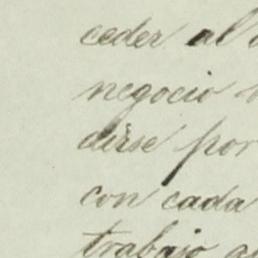 ceder al
negocio
dirse por
con cada
trabajo